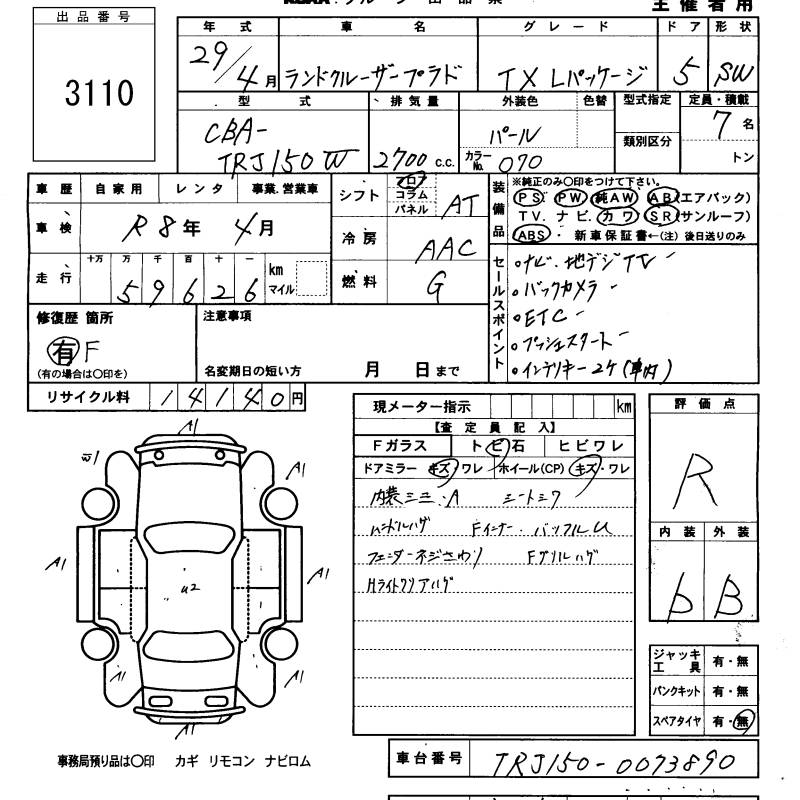 主催者用
出品番号
3110
年式 車名 グレード ドア 形状
29/4月 ランドクルーザープラド TX Lパッケージ 5 SW
型式 排気量 外装色 色替 型式指定 定員・積載
CBA-TRJ150W 2700c.c. パール 類別区分 7名
カラーNo. 070 トン
車歴 自家用 レンタ 事業.営業車
シフト フロア コラム パネル AT
車検 R8年4月
冷房 AAC
走行 十万 万 千 百 十 一
59626 km マイル
燃料 G
装備品 ※純正のみ〇印をつけて下さい。
PS. PW. 純AW. AB(エアバック)
TV. ナビ. カワ. SR(サンルーフ)
ABS ・新車保証書←(注) 後日送りのみ
セールスポイント
○ナビ.地デジTV
○バックカメラ
○ETC
○プッシュスタート
○インテリキー2ケ(車内)
修復歴 箇所 注意事項
有 F
(有の場合は〇印を)
名変期日の短い方 月 日まで
リサイクル料 14140円
現メーター指示 km
【査定員記入】
Fガラス トビ石 ヒビワレ
ドアミラー キズ・ワレ ホイール(CP) キズ・ワレ
内装ミニ.A シートシワ
ハンドルハゲ Fインナー.バッフルU
フェンダーネジさわり Fグリルハゲ
Hライトクリアハゲ
評価点
R
内装 外装
b B
A1
W1
A1
A1
A1
U2
A1
A1
A1
ジャッキ工具 有・無
パンクキット 有・無
スペアタイヤ 有・無
事務局預り品は〇印 カギ リモコン ナビロム
車台番号 TRJ150-0073890